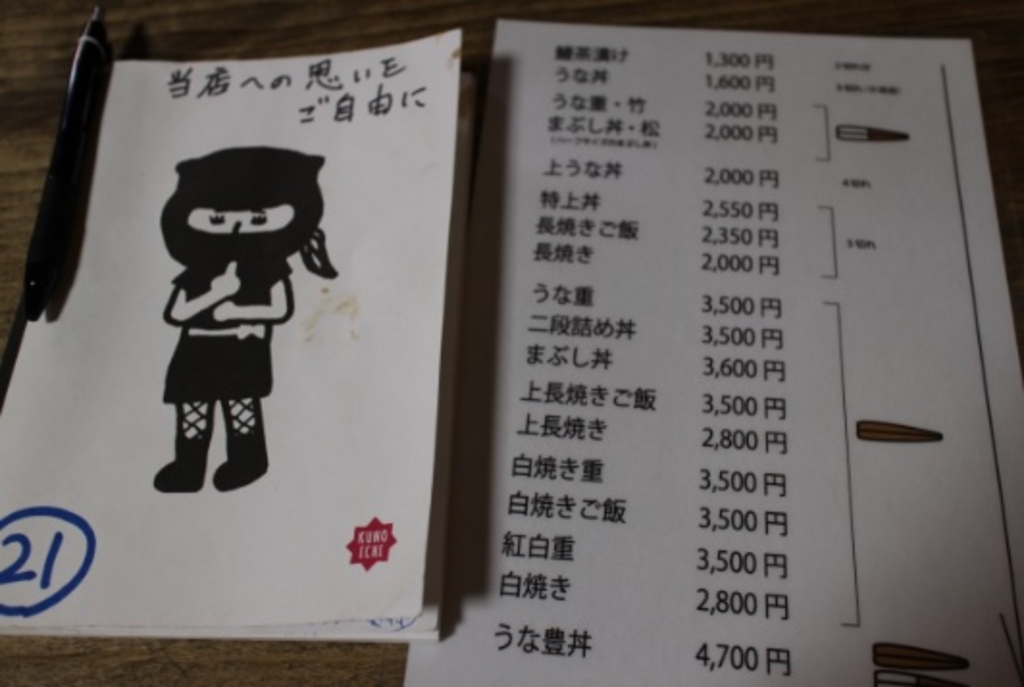 当店への思いを
ご自由に
KUNO
ICHI
21
鰻茶漬け 1,300 円
うな丼 1,600 円
うな重・竹 2,000 円
まぶし丼・松 2,000 円
(ハーフサイズのまぶし丼)
上うな丼 2,000 円
特上丼 2,550 円
長焼きご飯 2,350 円
長焼き 2,000 円
うな重 3,500 円
二段詰め丼 3,500 円
まぶし丼 3,600 円
上長焼きご飯 3,500 円
上長焼き 2,800 円
白焼き重 3,500 円
白焼きご飯 3,500 円
紅白重 3,500 円
白焼き 2,800 円
うな豊丼 4,700 円